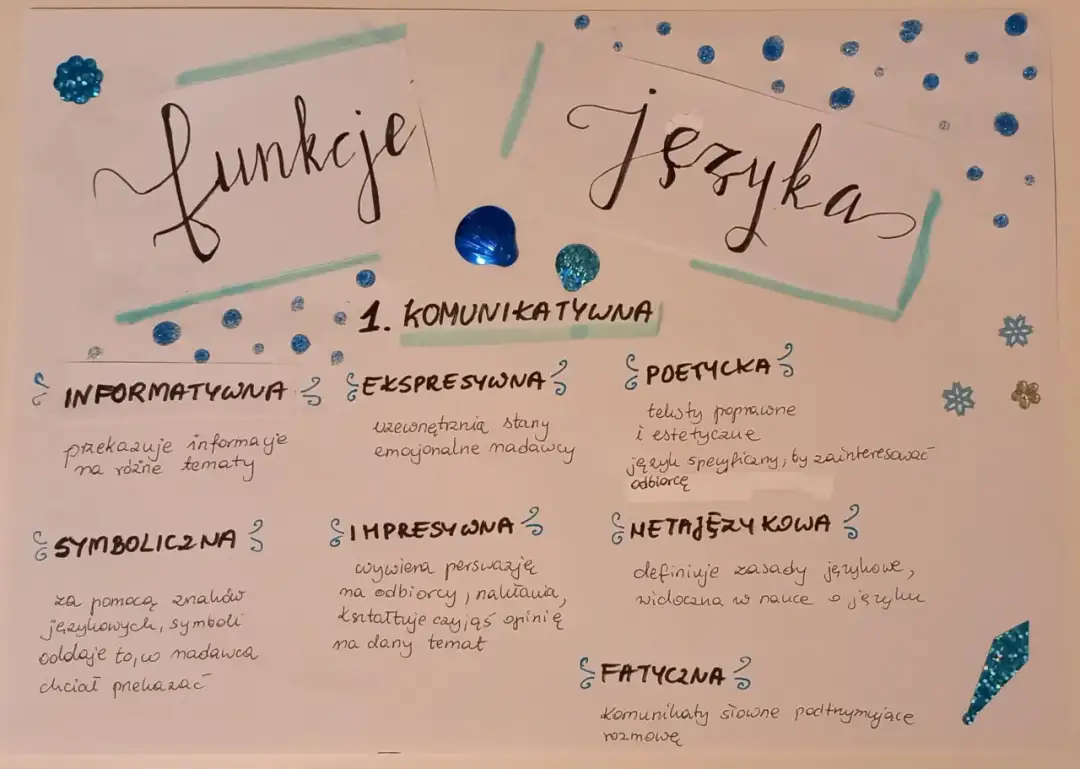 funkcje języka
1. KOMUNIKATYWNA
INFORMATYWNA
przekazuje informacje
na różne tematy
EKSPRESYWNA
uzewnętrznia stany
emocjonalne nadawcy
POETYCKA
teksty poprawne
i estetyczne
język specyficzny, by zainteresować
odbiorcę
SYMBOLICZNA
za pomocą znaków
językowych, symboli
oddaje to, co nadawca
chciał przekazać
IMPRESYWNA
wywiera perswazję
na odbiorcy, nakłania,
kształtuje czyjąś opinię
na dany temat
METAJĘZYKOWA
definiuje zasady językowe,
widoczna w nauce o języku
FATYCZNA
komunikaty słowne podtrzymujące
rozmowę